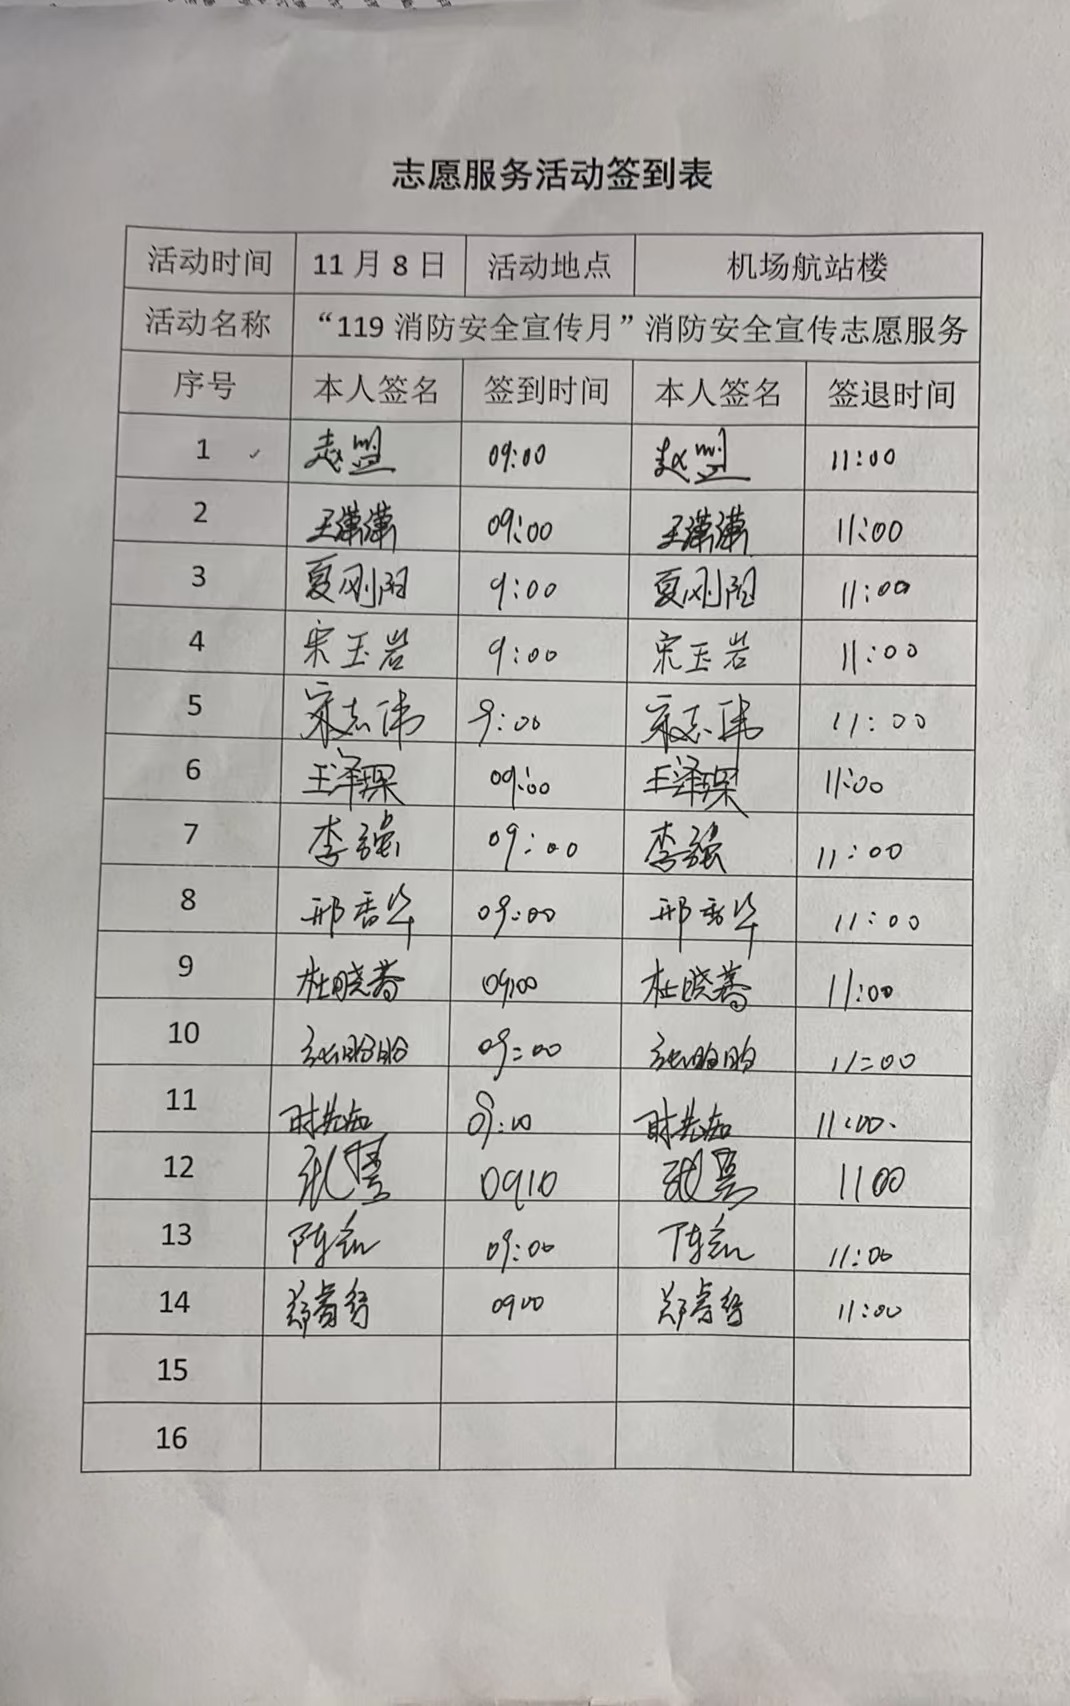 志愿服务活动签到表
活动时间 11月8日 活动地点 机场航站楼
活动名称 “119消防安全宣传月”消防安全宣传志愿服务
序号 本人签名 签到时间 本人签名 签退时间
1 赵盟 09:00 赵盟 11:00
2 王潇潇 09:00 王潇潇 11:00
3 夏刚阳 9:00 夏刚阳 11:00
4 宋玉岩 9:00 宋玉岩 11:00
5 宋志伟 9:00 宋志伟 11:00
6 王泽琛 09:00 王泽琛 11:00
7 李强 09:00 李强 11:00
8 邢香华 09:00 邢香华 11:00
9 杜晓 09:00 杜晓 11:00
10 张盼盼 09:00 张盼盼 11:00
11 时 09:10 时 11:00
12 张 0910 张 1100
13 陈 09:00 陈 11:00
14 郑睿 0900 郑睿 11:00
15
16